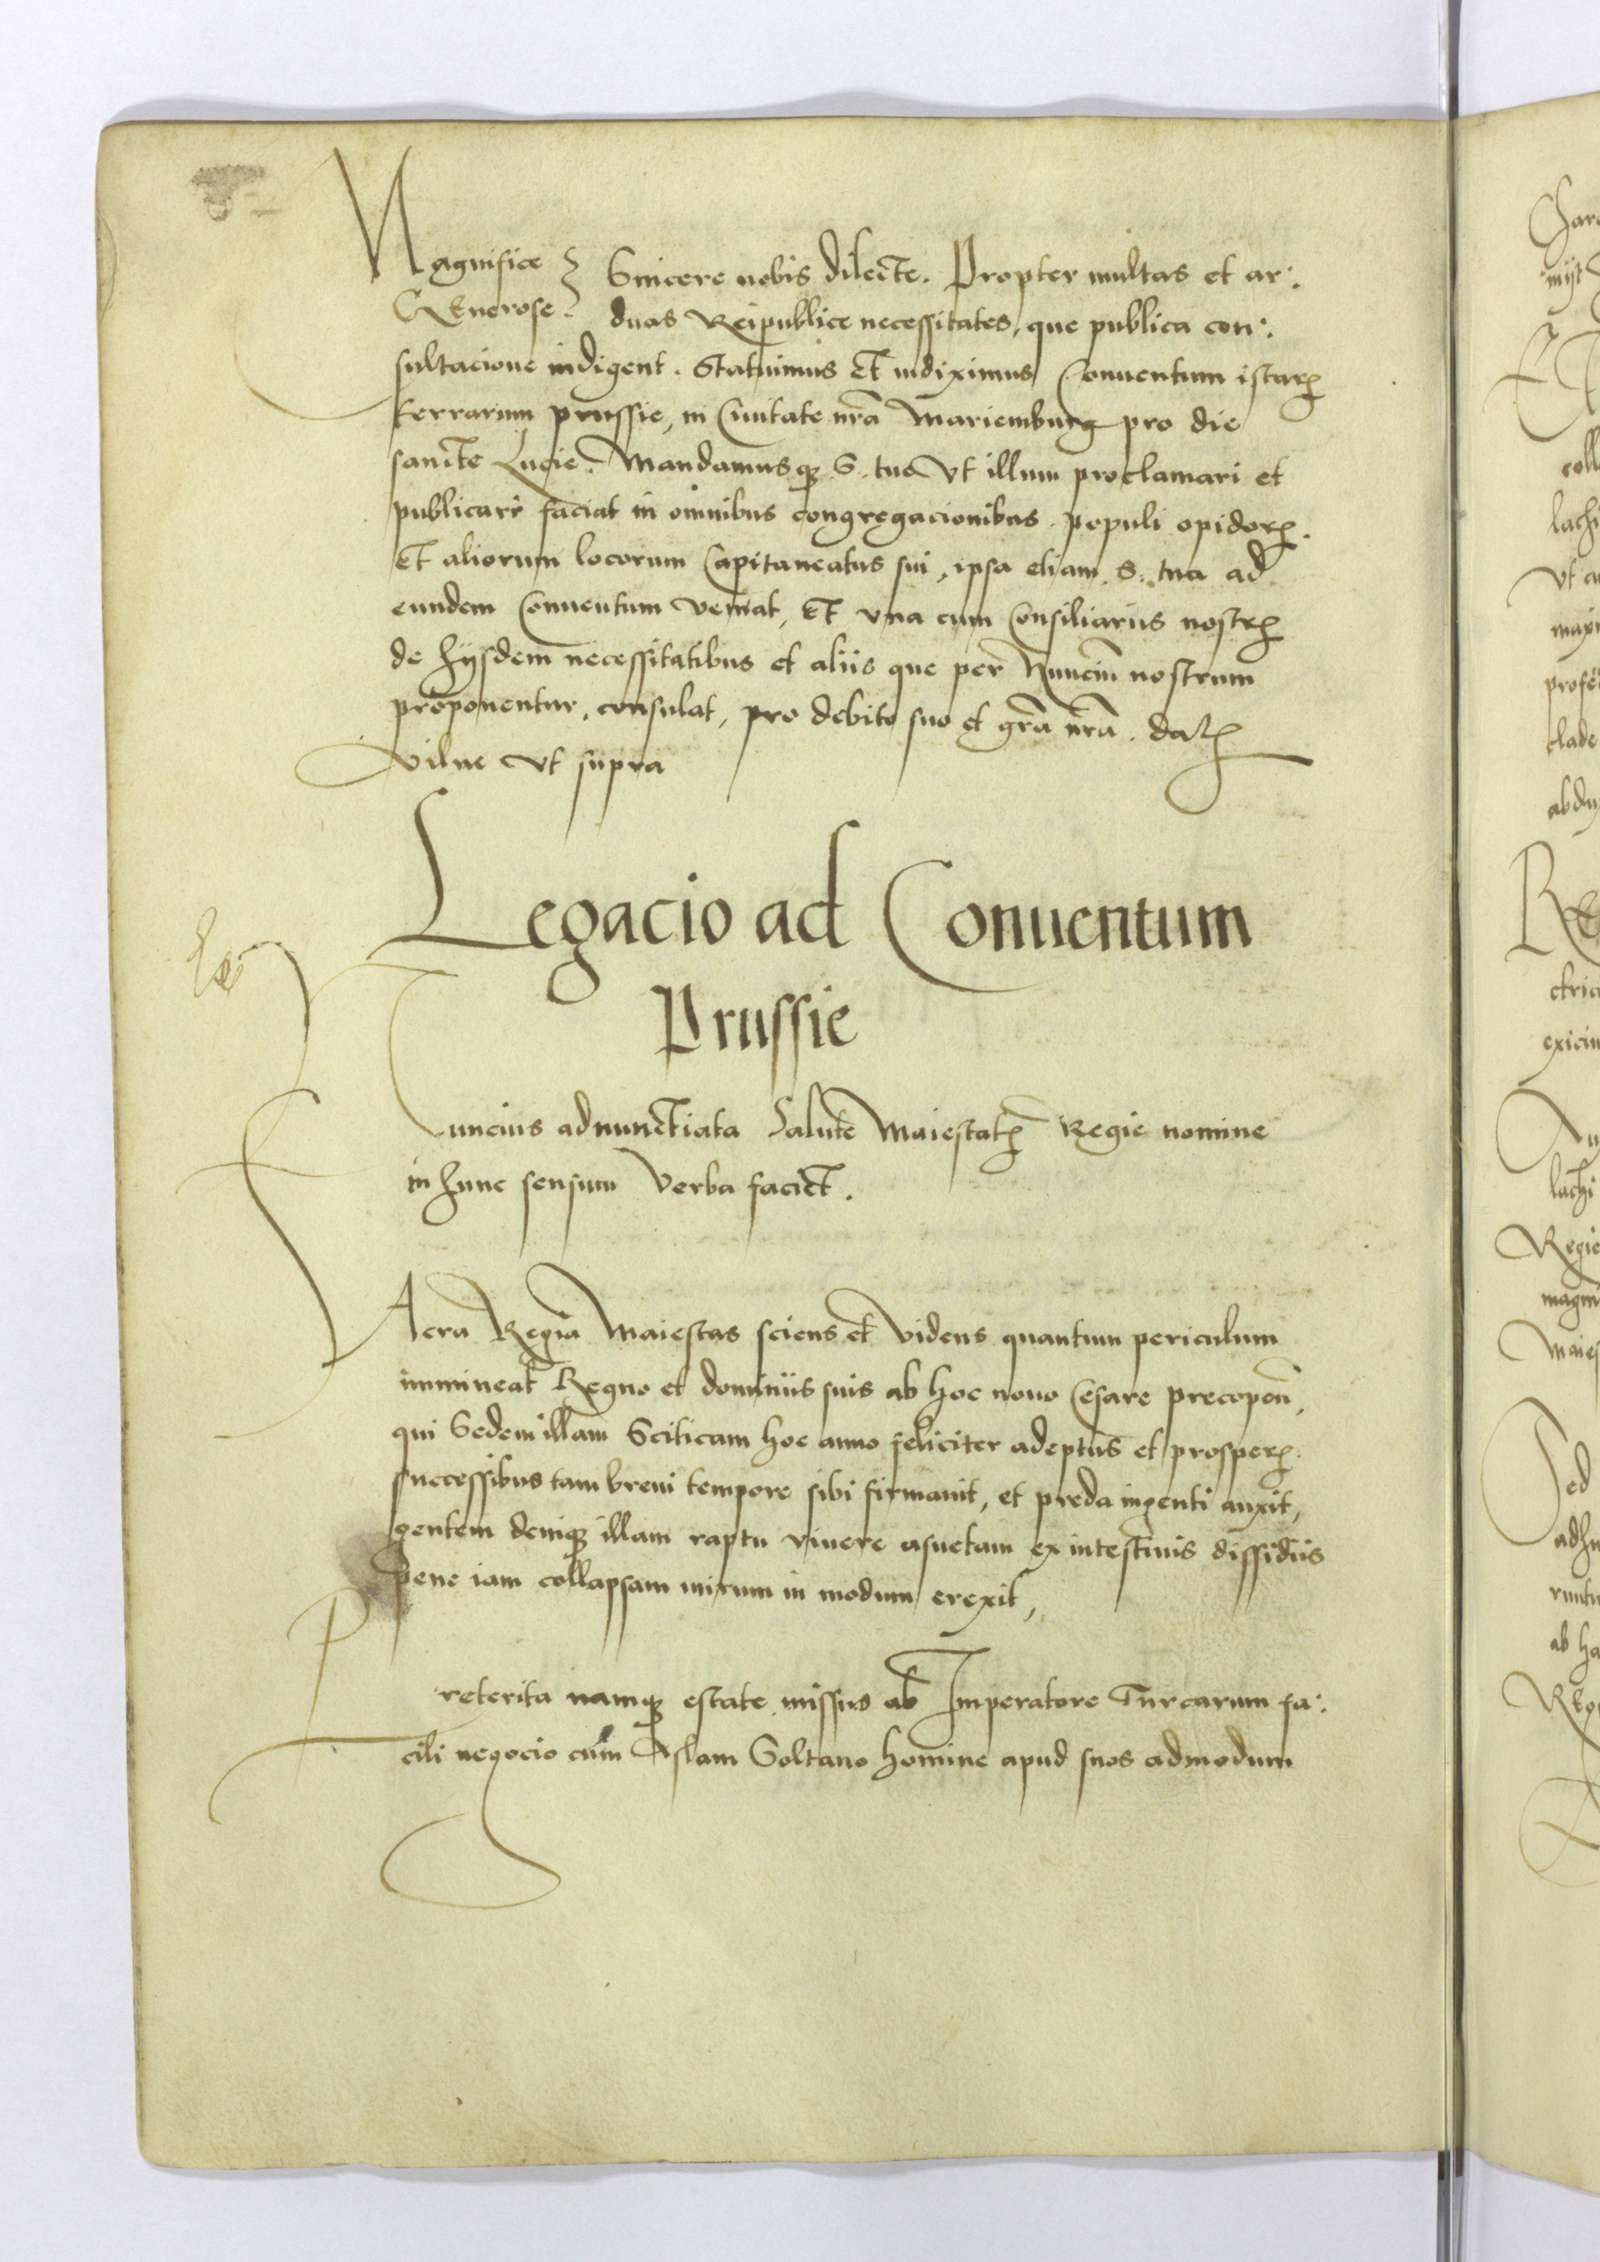 Magnifice Sincere nobis dilecte. Propter multas et ar:
GEnerose duas Reipublice necessitates, que publica con:
sultacione indigent. Statuimus Et indiximus Conuentum istarꝫ
terrarum prussie, in Ciuitate nrã Mariemburg pro die
sancte Lucie. Mandamusqꝫ S. tue Vt illum proclamari et
publicari faciat in omnibus congregacionibus populi opidorꝫ.
Et aliorum locorum Capitaneatus sui, ipsa etiam S. tua ad
eundem Conuentum Veniat, Et vna cum Consiliariis nostrꝫ
de hijsdem necessitatibus et aliis que per Nunciũ nostrum
proponentur, consulat, pro debito suo et grã nrã. datꝫ
Vilne Vt supra
Legacio ad Conuentum
Prussie
Nuncius adnunctiata Salute Maiestatꝫ Regie nomine
in hunc sensum Verba faciet.
SAcra Regia Maiestas sciens et Videns quantum periculum
immineat Regno et dominiis suis ab hoc nouo Cesare precopeñ,
qui Sedem illam Sciticam hoc anno feliciter adeptus et prosperꝫ
successibus tam breui tempore sibi firmauit, et preda ingenti auxit,
gentem deniqꝫ illam raptu viuere asuetam ex intestinis dissidiis
pene iam collapsam mirum in modum erexit,
Preterita namqꝫ estate missus ab Imperatore Turcarum fa:
cili negocio cum Aslam Soltano homine apud suos admodum